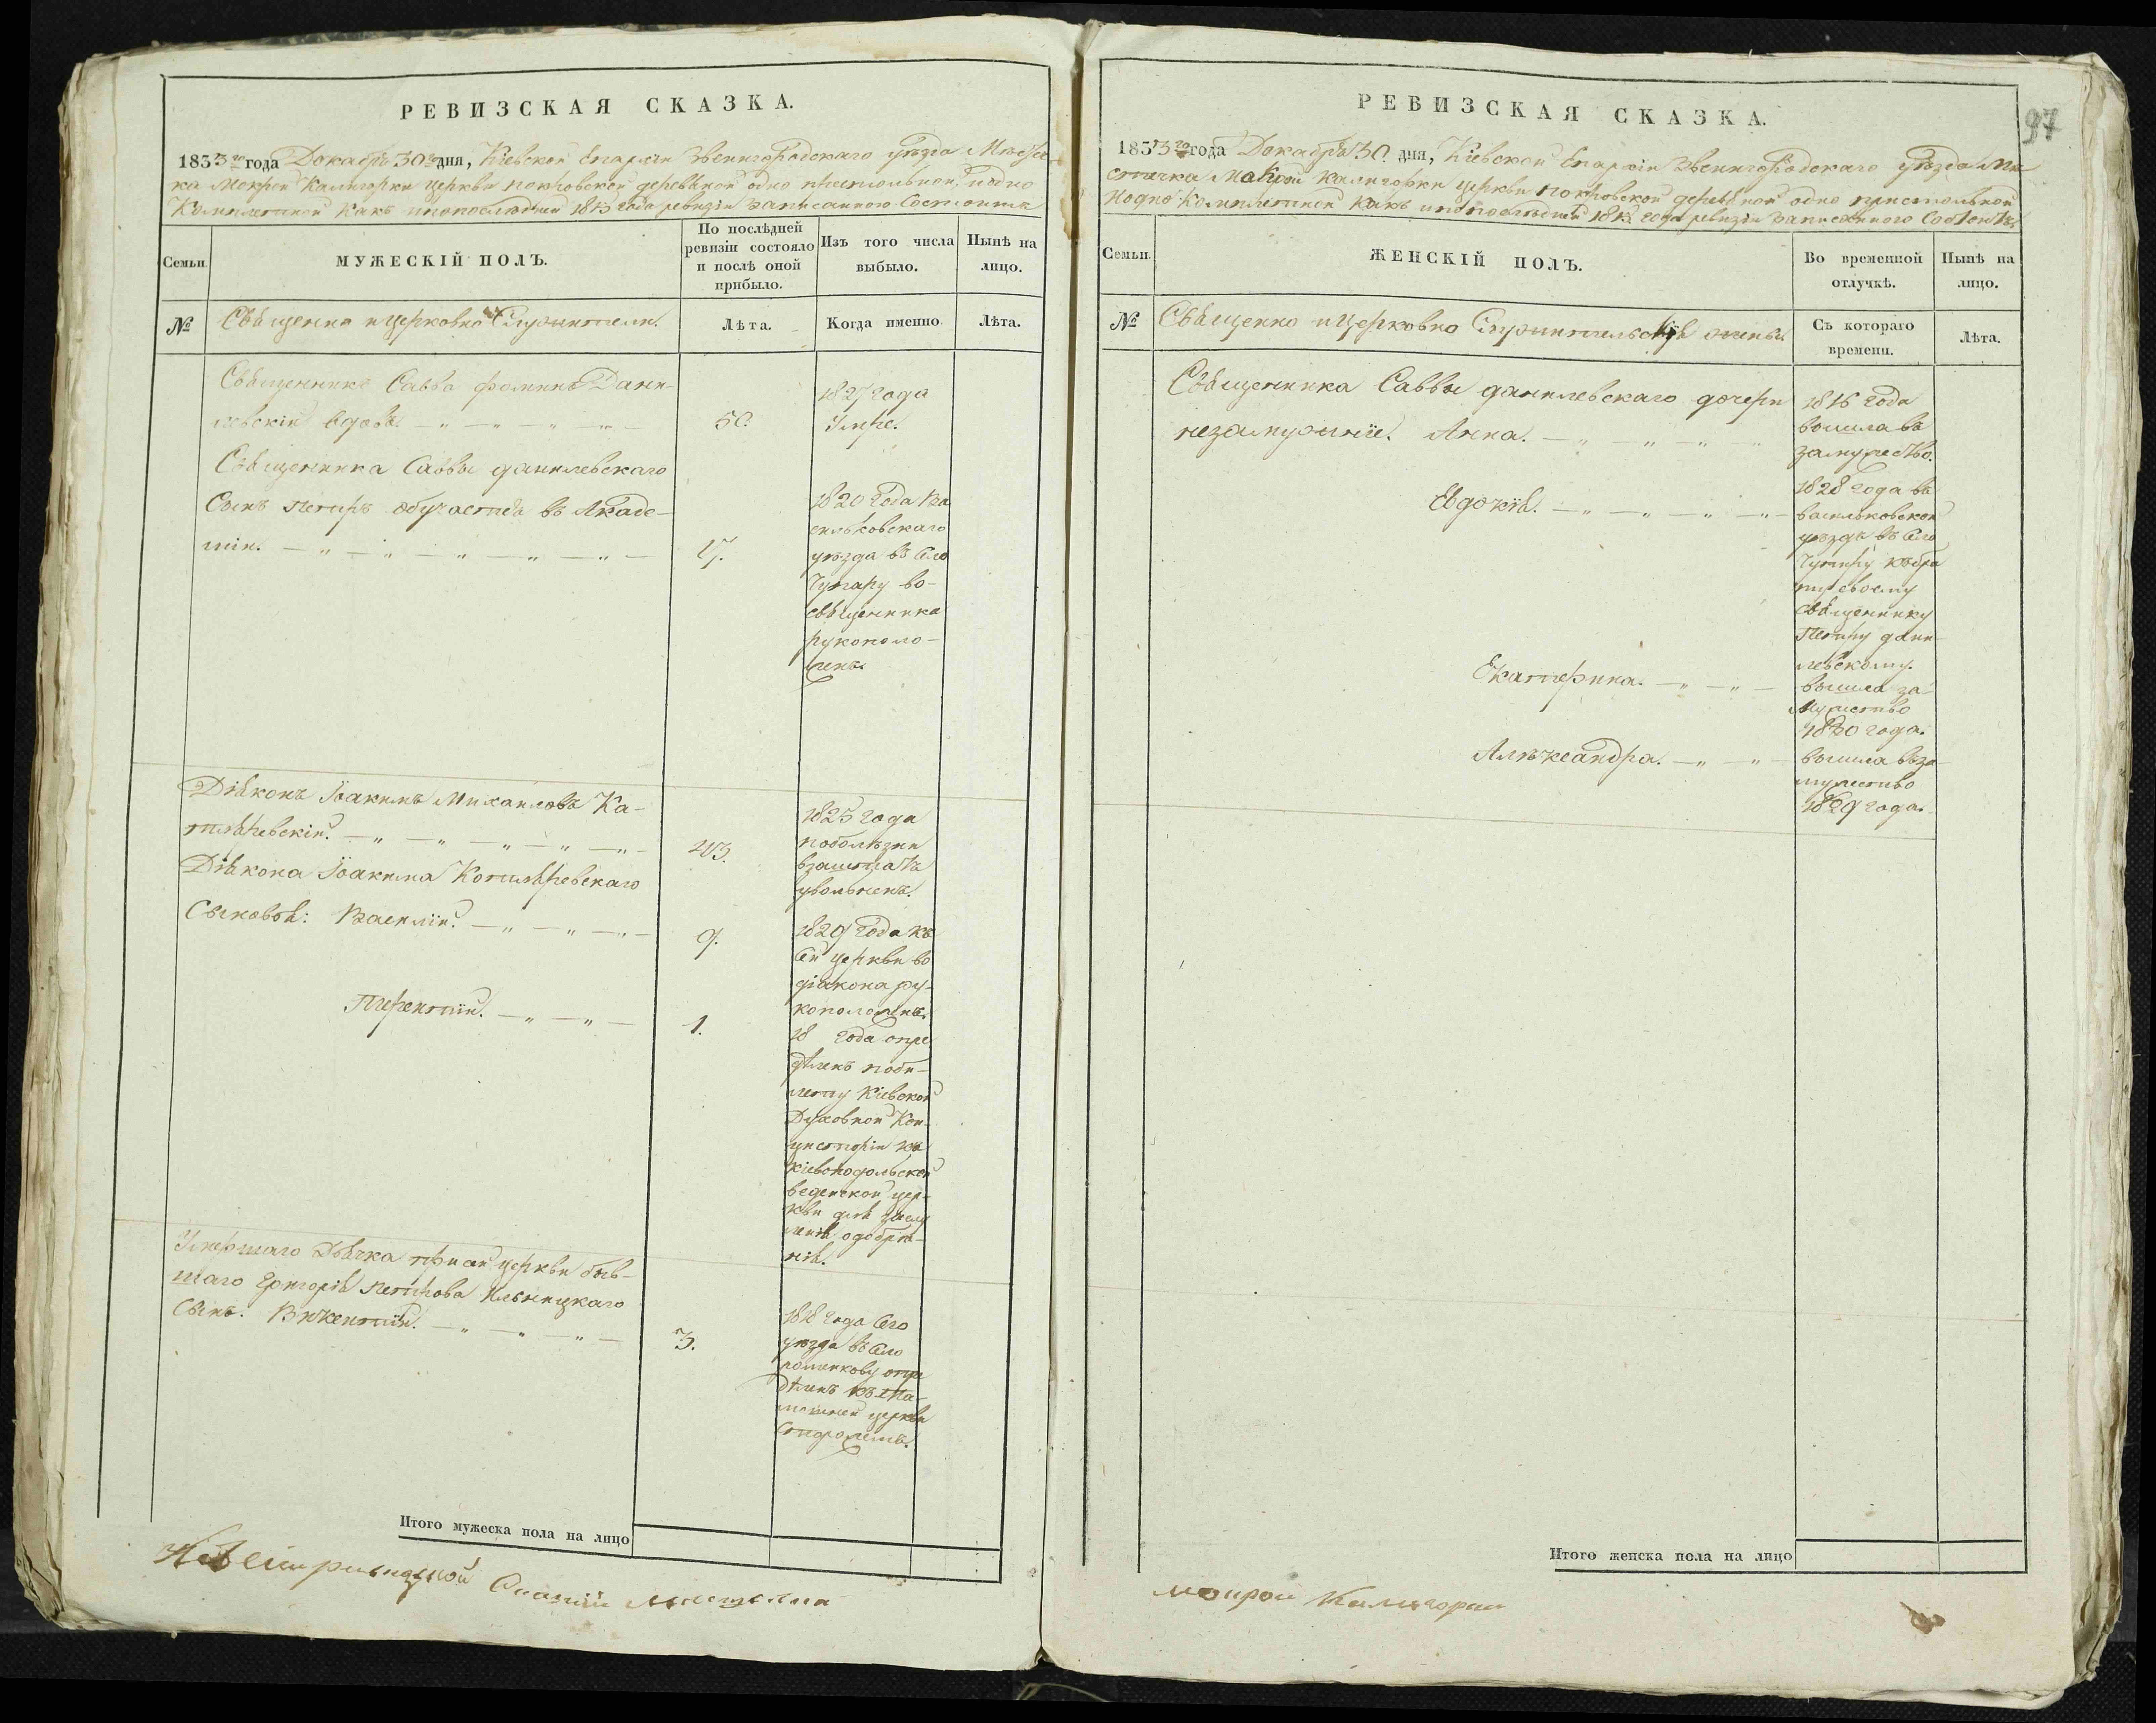 РЕВИЗСКАЯ СКАЗКА.
1833го года Декабря 30го дня, Кіевской Епархіи Звенигородскаго уѣзда Мѣстеч-
ка Мокрой Калигорки церкви покровской деревяной одно престольной, и одно
Комплетной какъ и по последней 1815 года ревизіи записанного Состоитъ
Семьи.
МУЖЕСКІЙ ПОЛЪ.
По послѣдней
ревизіи состояло
и послѣ оной
прибыло.
Изъ того числа
выбыло.
Нынѣ на
лицо.
№
Священно и церковно Служители.
Лѣта.
Когда именно
Лѣта.
Священникъ Савва фоминъ Дани-
левскій вдовъ.
50.
1827 года
Умре.
Священника Саввы данилевскаго
Сынъ Петръ обучается въ Акаде-
міи.
17.
1820 года Ва
сильковскаго
уѣзда въ Село
Чупару во-
священника
рукополо-
женъ.
Діаконъ Іоакимъ Михаиловъ Ка-
тляревскій.
43.
1825 года
по болѣзни
в заштатъ
уволненъ.
Діакона Іоакима Котляревскаго
Сыновья: Василій.
9.
1829 года къ
Сей церкви во
діакона ру-
коположенъ.
Терентій.
1.
18 года опре
дѣленъ поби-
лету Кіевской
Духовной Кон-
систоріи къ
Кіевоподольской
веденской цер-
кви для заслу
женія одобре-
нія.
Умершаго Дьячка при сей церкви быв-
шаго Григорія Петрова Ильницкаго
Сынъ: Викентій.
3.
1818 года Сего
уѣзда въ Село
опре
дѣленъ къ та-
мошней церкви
Итого мужеска пола на лицо
РЕВИЗСКАЯ СКАЗКА.
97
1833го года Декабря 30. дня, Кіевской Епархіи Звенигородскаго уѣзда Мѣ
стечка Мокрой Калигорки церкви покровской деревяной одно престольной
Иодно Комплетной какъ и по последней 1815 года ревизіи записанного Состоитъ
Семьи.
ЖЕНСКІЙ ПОЛЪ.
Во временной
отлучкѣ.
Нынѣ на
лицо.
№
Священно и Церковно Служительскія жены.
Съ котораго
времени.
Лѣта.
Священника Саввы данилевскаго дочери
незамужніе: Анна.
1816 года
вошла въ
замужество.
Евдокія.
1828 года въ
васильковской
уѣздъ въ село
Чупиру къ бра
ту своему
священнику
Петру дани-
левскому.
Екатерина.
вошла за-
Мужество
1830 года.
Алѣксандра.
вошла в за-
мужество
1829 года.
Итого женска пола на лицо
мокрой Калигорки